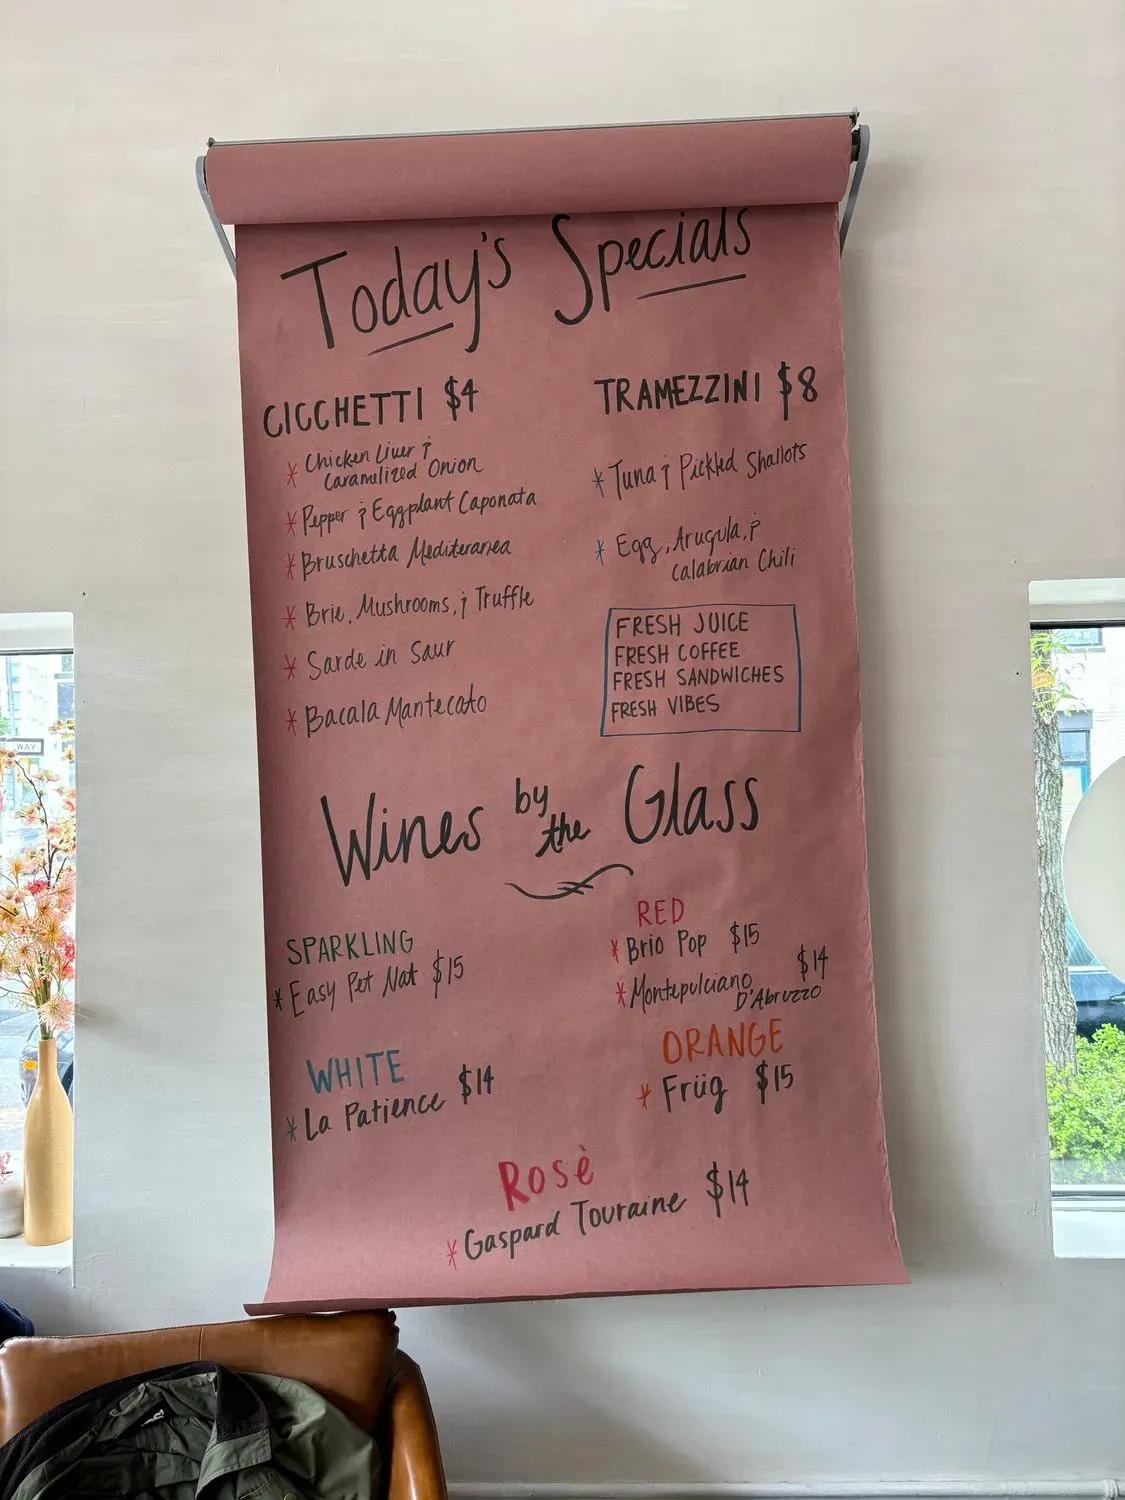 Today's Specials
CICCHETTI $4
Chicken Liver &
Caramelized Onion
Pepper & Eggplant Caponata
Bruschetta Mediteranea
Brie, Mushrooms, & Truffle
Sarde in Saur
Bacala Mantecato
TRAMEZZINI $8
Tuna & Pickled Shallots
Egg, Arugula, &
Calabrian Chili
FRESH JUICE
FRESH COFFEE
FRESH SANDWICHES
FRESH VIBES
Wines by the Glass
SPARKLING
Easy Pet Nat $15
RED
Brio Pop $15
Montepulciano $14
D'Abruzzo
WHITE
La Patience $14
ORANGE
Früg $15
Rosè
Gaspard Touraine $14
WAY